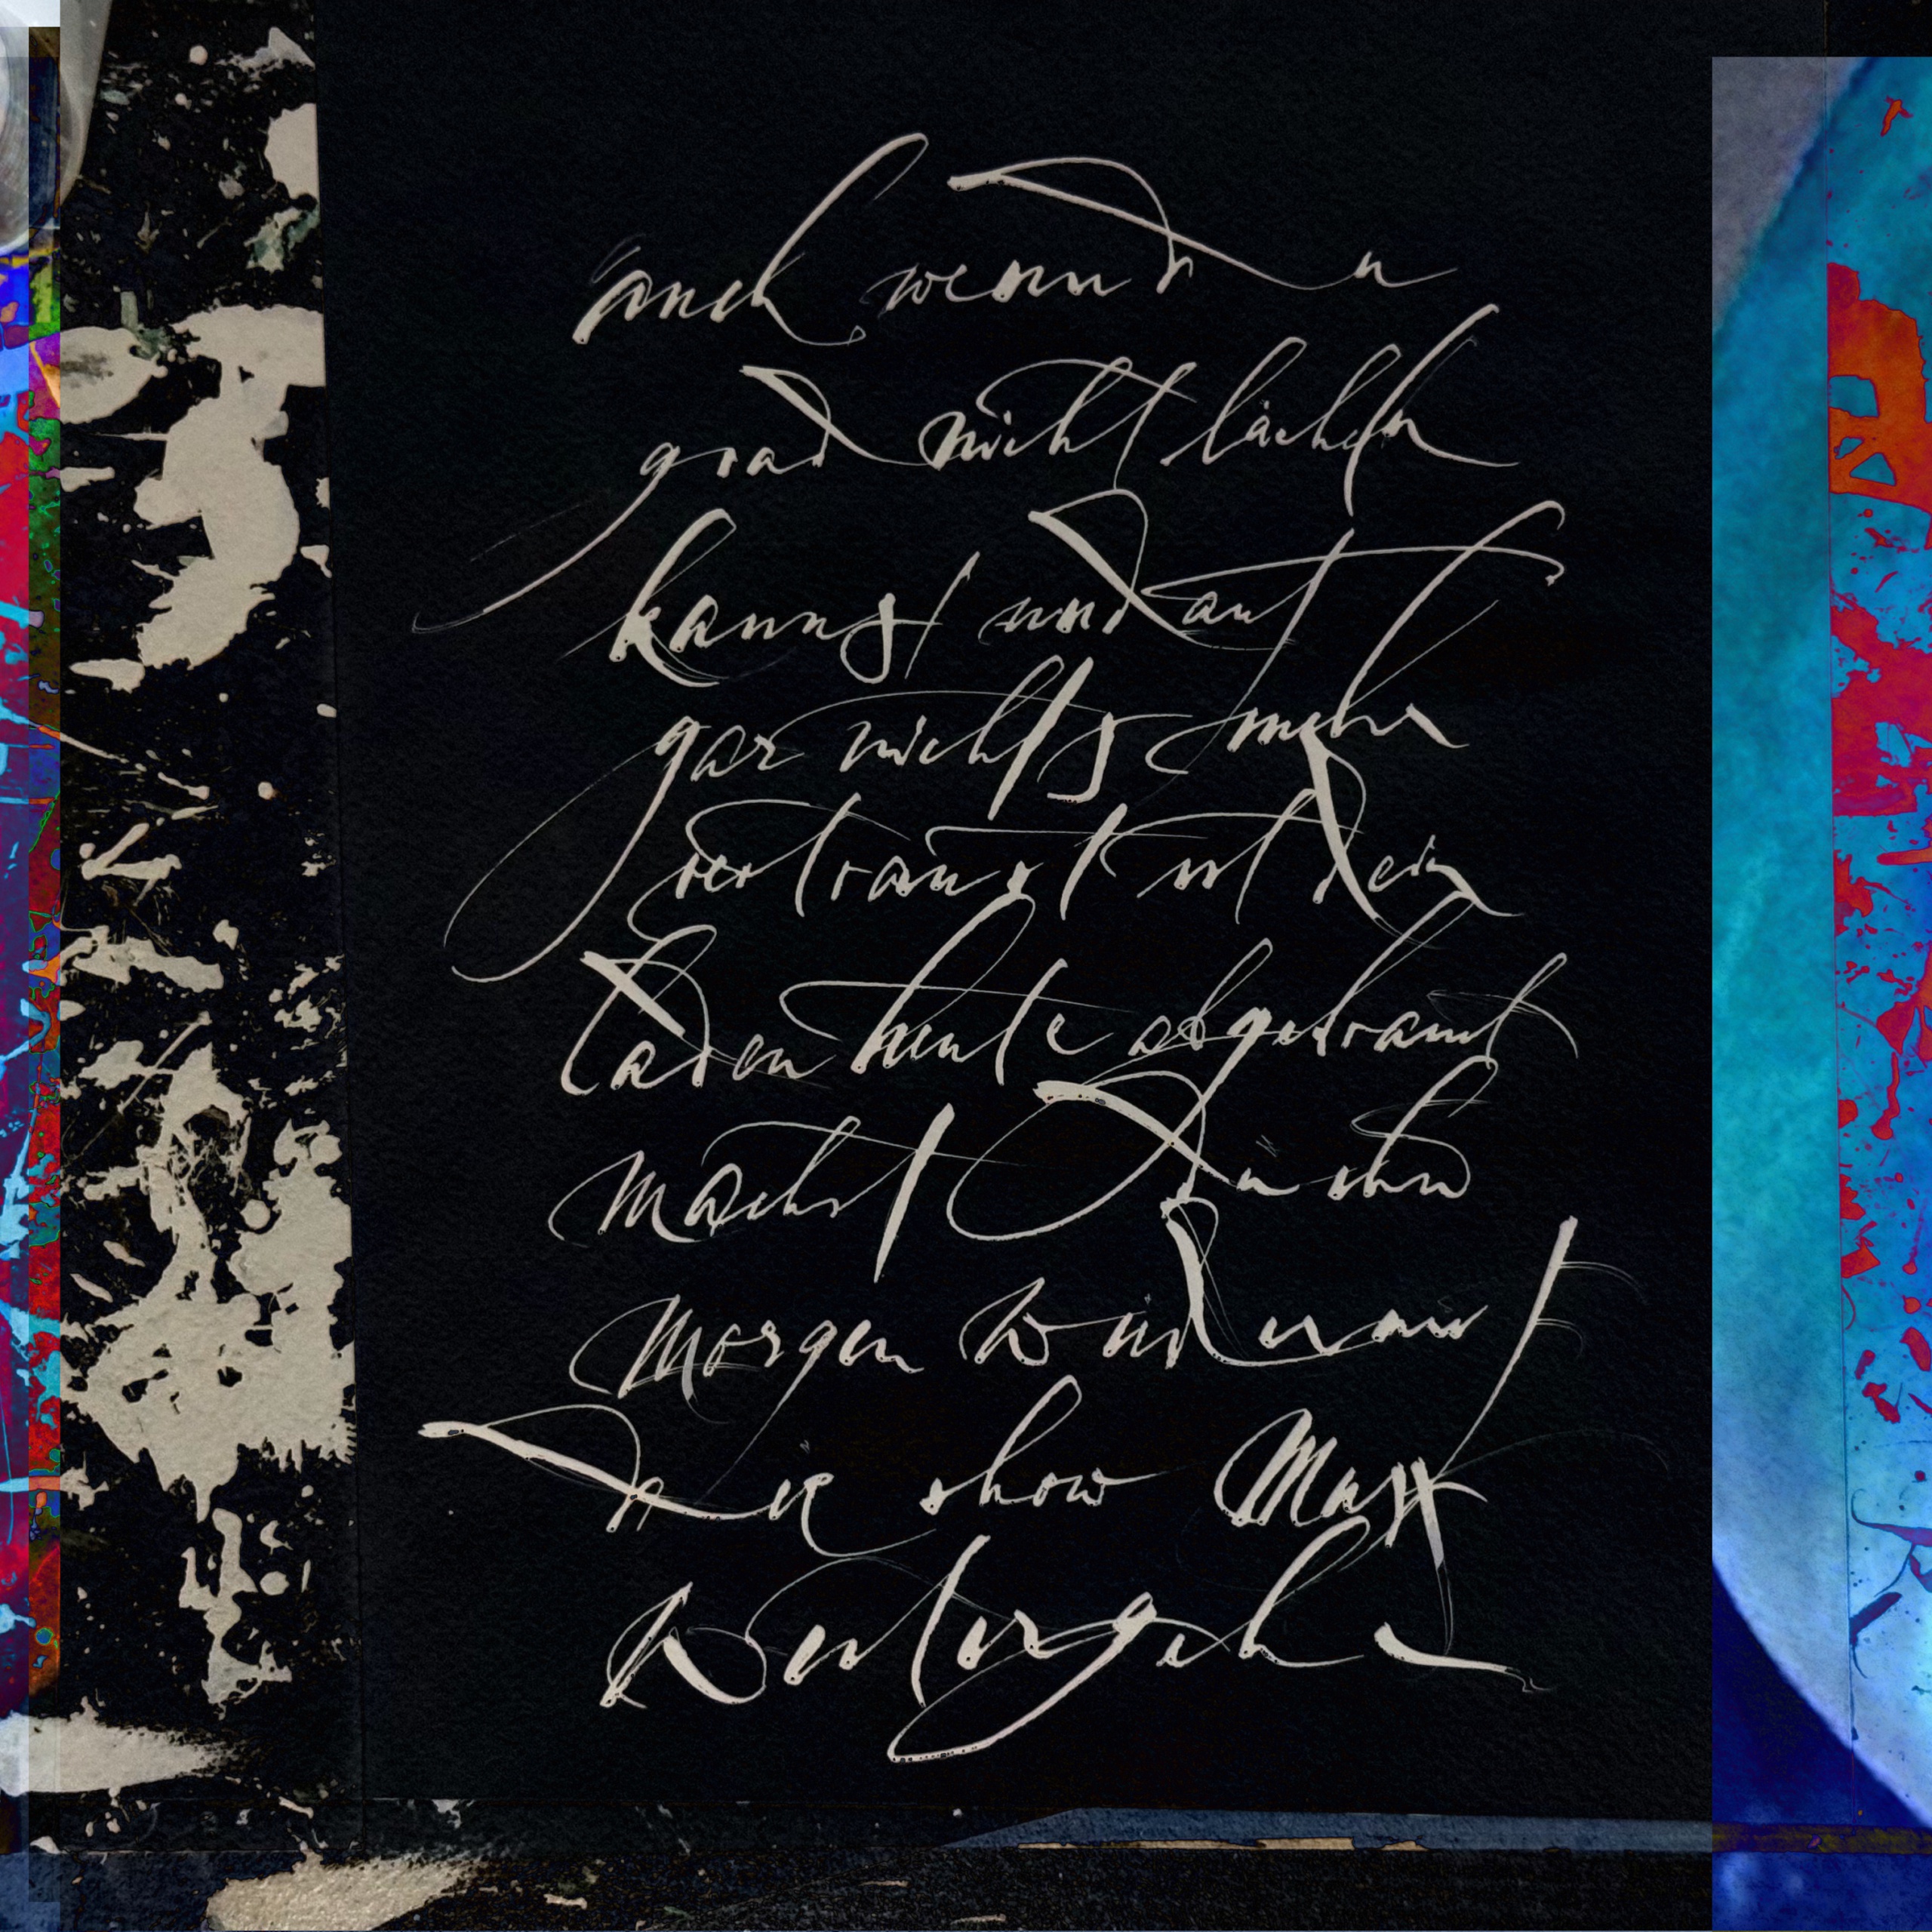 auch wenn du
grad nicht lächeln
kannst und auf
gar nichts mehr
vertraust ist dein
Laden heute abgebrannt
machst du ihn
morgen wieder auf
die show muss
weitergehn